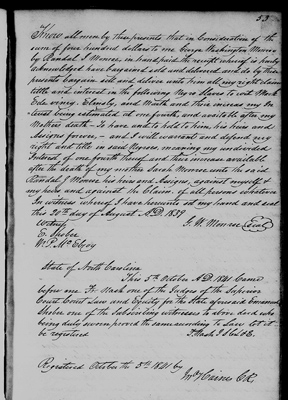 53
Know all men by these presents that in Consideration of the
sum of four hundred dollars to me George Washington Monroe
by Randal J Monroe, in hand paid the receipt whereof is hereby
acknowledged have bargained sold and delivered and do by these
presents bargain sell and deliver unto him all my right claim
title and interest in the following Negro Slaves to wit
and their increase my In
terest being estimated at one fourth, and available after my
Mothers death. To have and to hold to him, his heirs and
Assigns forever, and I will warrant and defend my
right and title in said Negroes, meaning my undivided
Interest of one fourth though and there increase available
after the death of my mother Sarah Monroe unto the said
Randal J Monroe his heirs and Assigns, against myself &
my heirs and against the Claim, of all persons whatever
In witness whereof I have hereunto set my hand and seal
this 20th day of August A.D. 1839
G. W. Monroe Seal
Witness
E. Shober
Wm P. McElroy
State of North Carolina
This 5th October A.D. 1841 Came
before me F. Nash one of the Judges of the Superior
Court Court Law and Equity for the State aforesaid Emmanuel
Shober one of the Subscribing witnesses to above deed who
being duly sworn proved the same according to Law Let it
be registered
F. Nash J.
Registered October the 5th 1841 by
Haines